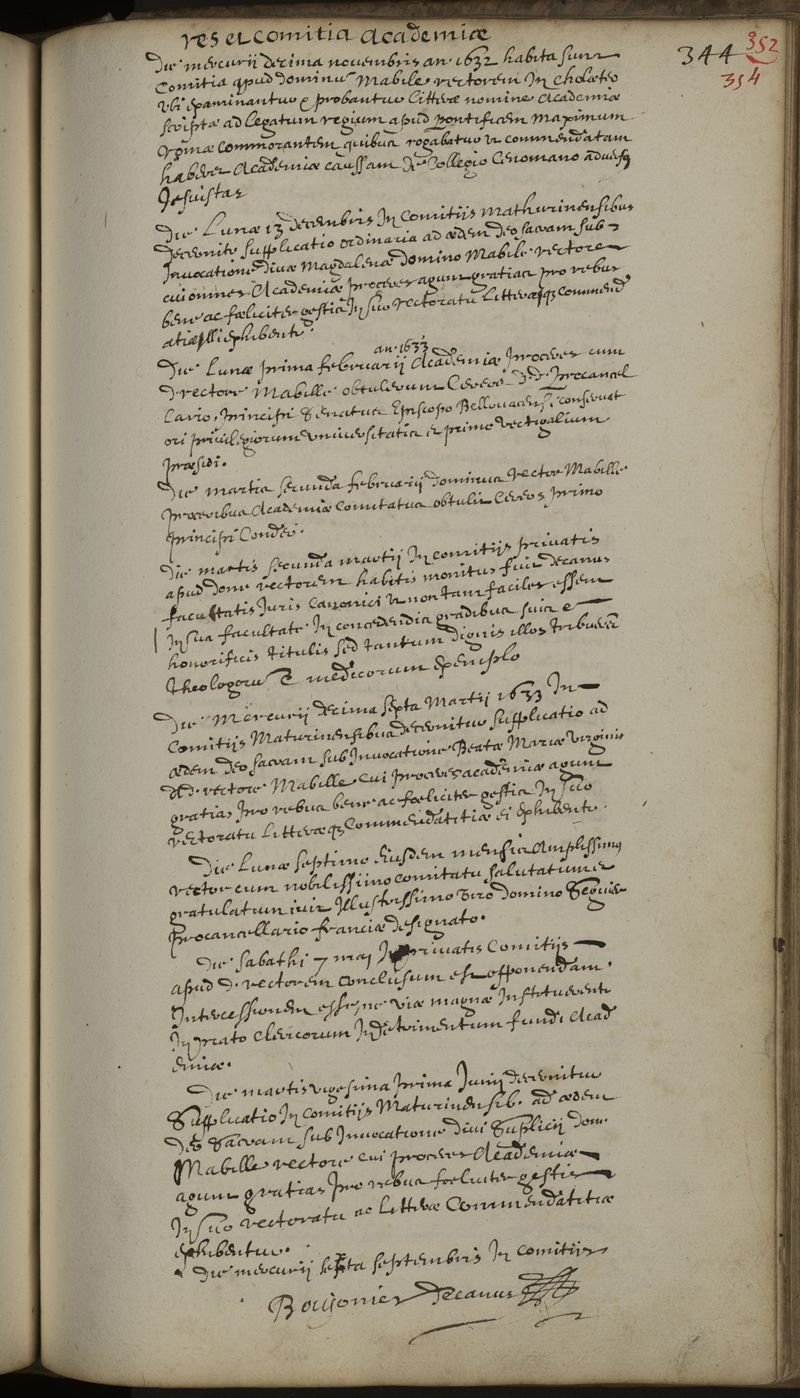 res et comitia Academiæ
344 352
354
Die mercurii decima novembris an 1632 habita sunt
Comitia apud dominũ Mabile rectorem In Cholæteo
ubi examinantur & probantur litteræ nomine Academiæ
scriptæ ad legatum regium apud pontificem maximum
romæ commorantem quibus rogabatur ut commendatam
haberet Academiæ caussam de Collegio Cenomano adversq
Jesuistas
Die Lunæ 13 decembris In Comitijs mathurinensibus
decernitr supplicatio ordinaria ad ædem deo sacram sub
Invocatione divæ Magdalenæ domino Mabile rectore
cui omnes Academiæ proceres agunt gratias pro rebus
bene ac fœliciter gestis In suo rectoratu litteræq; commend
atiæ illi exhibentr.
an. 1633
Die Lunæ prima februarij Academiæ proceres cum
D rectore Mabille obtulerunt Cereos D.D. procancel
lario, principi senatus Episcopo Bellovacensi conservat
ori privilegiorum universitatis et primo vectigalium
præsidi.
Die martis secunda februarij dominus rector Mabille
proceribus Academiæ Comitatus obtulit Cereos primo
principi Condeo.
Die martis secunda martij In comitijs privatis
apud dom rectorem habitis monitus fuit decanus
facultatis Juris Canonici ut non tam faciles essent
In sua facultate In concedendis gradibus suis &
honorificis titulis sed tantum dignis illos tribuerent
theologorũ & medicorum exemplo
Die Mercurij decima sexta Martij 1633 In
Comitijs Maturinensibus decernitur supplicatio ad
ædem deo sacram sub Invocatione Beatæ Mariæ virginis
D.D. rectore Mabille cui proceres academiæ agunt
gratias pro rebus bene ac fœliciter gestis In suo
rectoratu litteræq; Commendatitiæ ei exhibentr.
Die Lunæ septimo eiusdem mensis Amplissimus
rector cum nobilissimo comitatu salutatum et
gratulatum ivit Illustrissimo viro domino Seguier
procancellario franciæ designato.
Die sabathi 7 maij In privatis Comitijs
apud D. rectorem conclusum est opponendam
Intercessionem esse, ne viæ magnæ Instituerentr
In prato Clericorum In detrimentum fundi Acad
emiæ.
Die martis vigesima prima Junij decernitur
Supplicatio In comitijs Maturinensib. ad ædem
deo Sacram sub Invocatione divi Suplicij dom.
Mabille rectore cui proceres Academiæ
agunt gratias pro rebus fœliciter gestis
In suo rectoratu ac litteræ Commendatitiæ
exhibentur.
Die mercurij sexta septembris In comitijs
Decanus